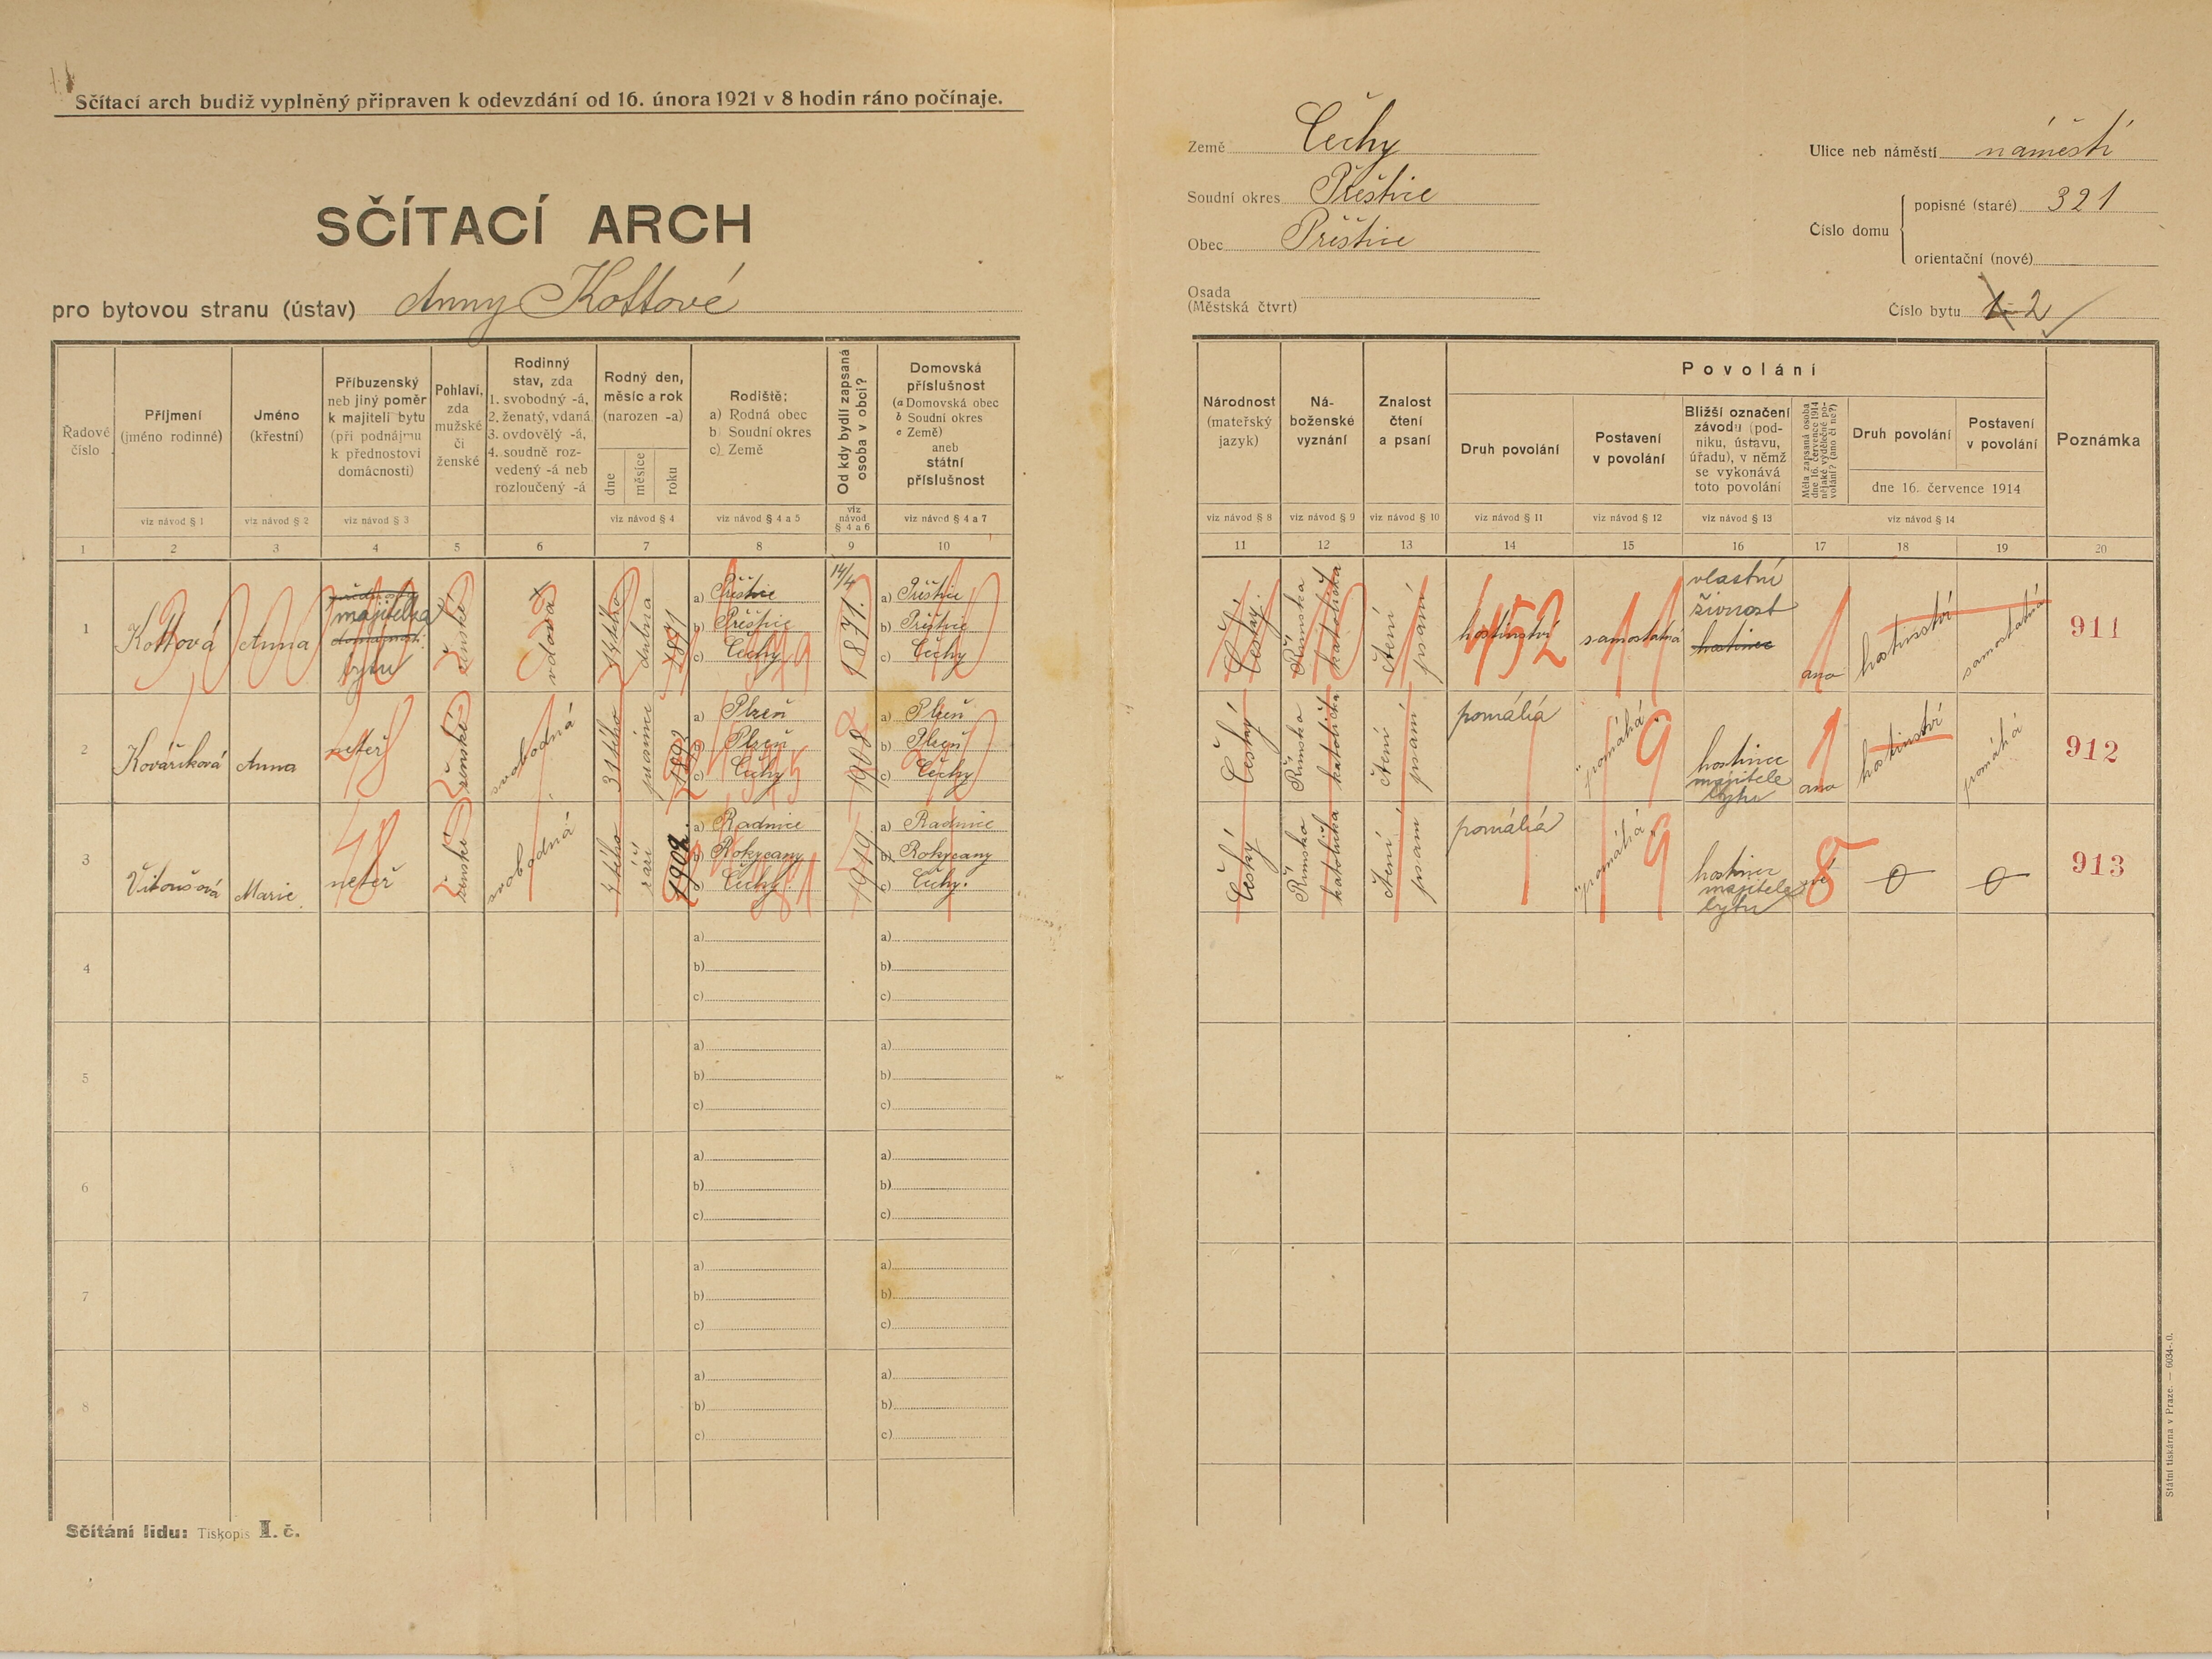 Sčítací arch budiž vyplněný připraven k odevzdání od 16. února 1921 v 8 hodin ráno počínaje.
SČÍTACÍ ARCH
pro bytovou stranu (ústav) Anny Kottové
Země Čechy
Soudní okres Přeštice
Obec Přeštice
Osada
(Městská čtvrt)
Ulice neb náměstí náměstí
Číslo domu
popisné (staré) 321
orientační (nové)
Číslo bytu 1 2
Řadové
číslo
Příjmení
(jméno rodinné)
Jméno
(křestní)
Příbuzenský
neb jiný poměr
k majiteli bytu
(při podnájmu
k přednostovi
domácnosti)
Pohlaví,
zda
mužské
či
ženské
Rodinný
stav, zda
1. svobodný -á,
2. ženatý, vdaná
3. ovdovělý -á,
4. soudně roz-
vedený -á neb
rozloučený -á
Rodný den,
měsíc a rok
(narozen -a)
dne
měsíce
roku
Rodiště:
a) Rodná obec
b) Soudní okres
c) Země
Od kdy bydlí zapsaná
osoba v obci?
Domovská
příslušnost
(a Domovská obec
b Soudní okres
c Země)
aneb
státní
příslušnost
viz návod § 1
viz návod § 2
viz návod § 3
viz návod § 4
viz návod § 4 a 5
viz
návod
§ 4 a 6
viz návod § 4 a 7
1 2 3 4 5 6 7 8 9 10
Národnost
(mateřský
jazyk)
Ná-
boženské
vyznání
Znalost
čtení
a psaní
Povolání
Druh povolání
Postavení
v povolání
Bližší označení
závodu (pod-
niku, ústavu,
úřadu), v němž
se vykonává
toto povolání
Měla zapsaná osoba
dne 16. července 1914
nějaké výdělečné po-
volání? (ano či ne?)
Druh povolání
Postavení
v povolání
dne 16. července 1914
Poznámka
viz návod § 8
viz návod § 9
viz návod § 10
viz návod § 11
viz návod § 12
viz návod § 13
viz návod § 14
11 12 13 14 15 16 17 18 19 20
1
Kottová
Anna
majitelka
bytu
ženské
vdova
14tého
dubna
1871
a) Přeštice
b) Přeštice
c) Čechy
14/4
1871.
a) Přeštice
b) Přeštice
c) Čechy
Český.
Římská
katolická
čtení
psaní
hostinství
452
samostatná
vlastní
živnost
hostinec
1
ano
hostinství
samostatná
911
2
Kovaříková
Anna
neteř
48
ženské
svobodná
31tého
prosince
1892
a) Plzeň
b) Plzeň
c) Čechy
1908
a) Plzeň
b) Plzeň
c) Čechy
Český
Římsko
čtení
psaní
pomáhá
pomáhá
9
hostinec
majitele
bytu
1
ano
hostinství
pomáhá
912
3
Vitoušová
Marie
48
neteř
ženské
svobodná
4tého
září
1902.
a) Radnice
b) Rokycany
c) Čechy.
1919
a) Radnice
b) Rokycany
c) Čechy.
Český
Římsko
katolička
čtení
psaní
pomáhá
"pomáhá"
9
hostinec
majitele
bytu
8
ne
0
0
913
4
a)
b)
c)
a)
b)
c)
5
a)
b)
c)
a)
b)
c)
6
a)
b)
c)
a)
b)
c)
7
a)
b)
c)
a)
b)
c)
8
a)
b)
c)
a)
b)
c)
Sčítání lidu: Tiskopis I. č.
Státní tiskárna v Praze. — 6034-.0.